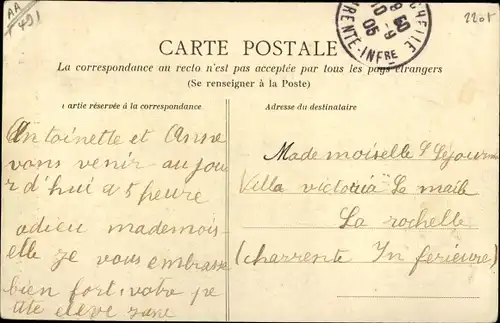 AA
1491
2205
CHELLE
8 50
10 -9
05
RENTE-INFRE
CARTE POSTALE
La correspondance au recto n'est pas acceptée par tous les pays étrangers
(Se renseigner à la Poste)
artie réservée à la correspondance
Adresse du destinataire
Antoinette et Anne
vons venir aujou
r d'hui a 5 heure
adieu mademois-
elle je vous embrasse
bien fort, votre pe
tite élève
Mademoiselle
Villa victoria Le maile
La rochelle
(charrente In ferieure)